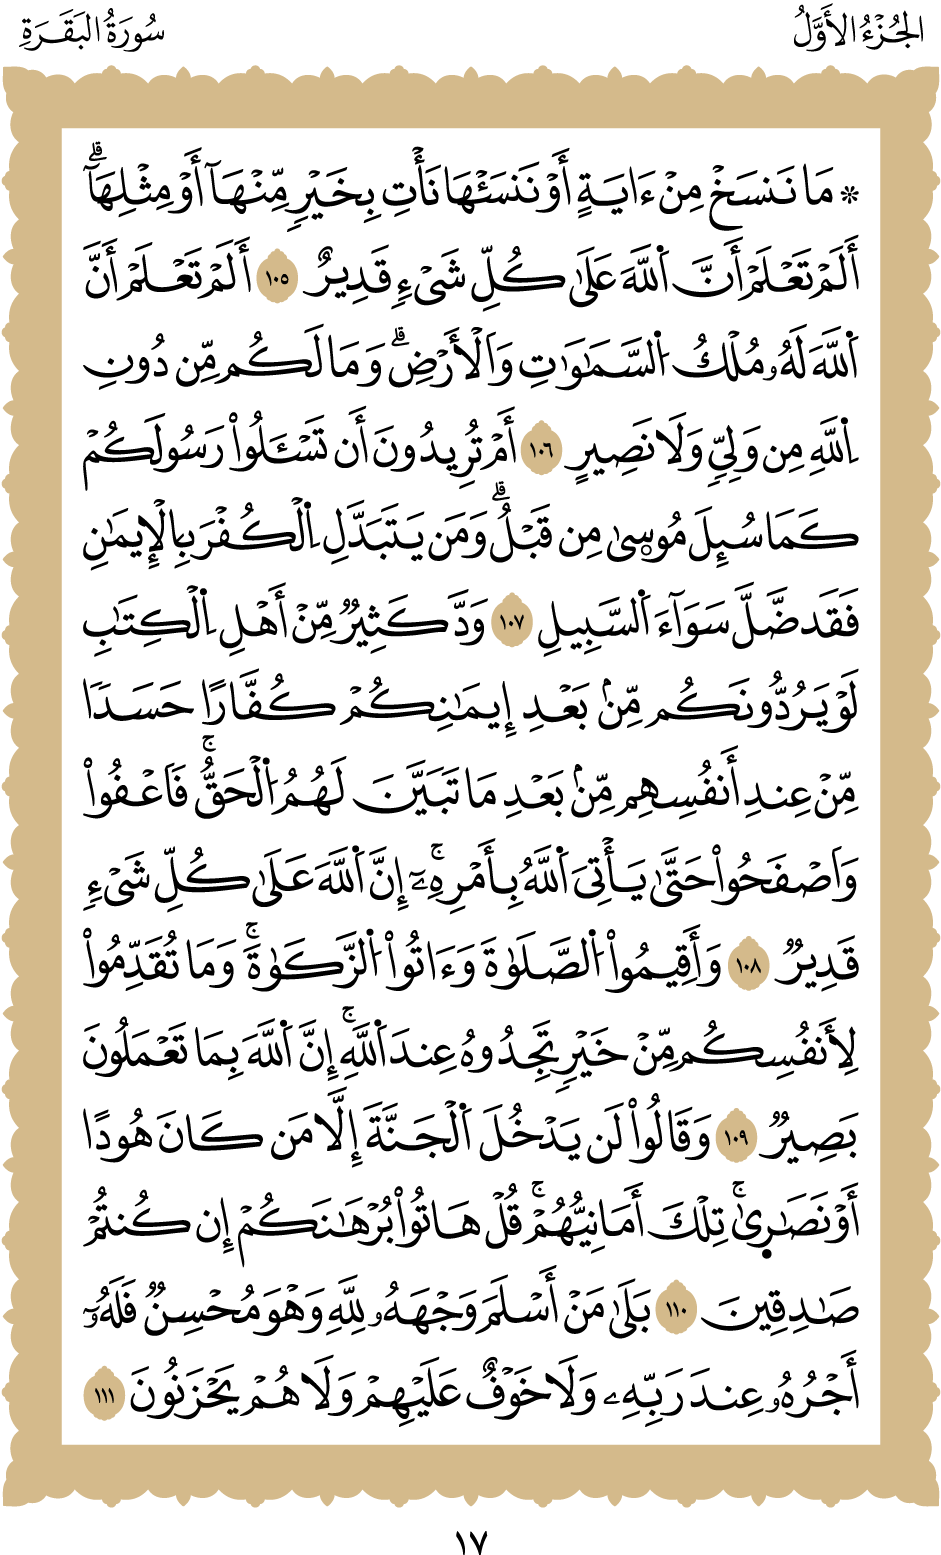 الجُزْءُ الأَوَّلُ
سُورَةُ البَقَرَةِ
۞ مَا نَنسَخْ مِنْ ءَايَةٍ أَوْ نَنسَـْٔهَا نَأْتِ بِخَيْرٍ مِّنْهَآ أَوْ مِثْلِهَآۗ
أَلَمْ تَعْلَمْ أَنَّ اَ۬للَّهَ عَلَىٰ كُلِّ شَىْءٍ قَدِيرٌ ١٠٥ أَلَمْ تَعْلَمْ أَنَّ
اَ۬للَّهَ لَهُۥ مُلْكُ اُ۬لسَّمَٰوَٰتِ وَالْأَرْضِۗ وَمَا لَكُم مِّن دُونِ
اِ۬للَّهِ مِن وَلِيٍّ وَلَا نَصِيرٍ ١٠٦ أَمْ تُرِيدُونَ أَن تَسْـَٔلُوا۟ رَسُولَكُمْ
كَمَا سُئِلَ مُوسۭىٰ مِن قَبْلُۗ وَمَن يَتَبَدَّلِ اِ۬لْكُفْرَ بِالْإِيمَٰنِ
فَقَد ضَّلَّ سَوَآءَ اَ۬لسَّبِيلِ ١٠٧ وَدَّ كَثِيرٌ مِّنْ أَهْلِ اِ۬لْكِتَٰبِ
لَوْ يَرُدُّونَكُم مِّنۢ بَعْدِ إِيمَٰنِكُمْ كُفَّارًا حَسَدًا
مِّنْ عِندِ أَنفُسِهِم مِّنۢ بَعْدِ مَا تَبَيَّنَ لَهُمُ اُ۬لْحَقُّۚ فَاعْفُوا۟
وَاَصْفَحُوا۟ حَتَّىٰ يَأْتِىَ اَ۬للَّهُ بِأَمْرِهِۦٓۚ إِنَّ اَ۬للَّهَ عَلَىٰ كُلِّ شَىْءٍ
قَدِيرٌ ١٠٨ وَأَقِيمُوا۟ اُ۬لصَّلَوٰةَ وَءَاتُوا۟ اُ۬لزَّكَوٰةَۚ وَمَا تُقَدِّمُوا۟
لِأَنفُسِكُم مِّنْ خَيْرٍ تَجِدُوهُ عِندَ اَ۬للَّهِۚ إِنَّ اَ۬للَّهَ بِمَا تَعْمَلُونَ
بَصِيرٌ ١٠٩ وَقَالُوا۟ لَن يَدْخُلَ اَ۬لْجَنَّةَ إِلَّا مَن كَانَ هُودًا
أَوْ نَصَٰرٜىٰۚ تِلْكَ أَمَانِيُّهُمْۚ قُلْ هَاتُوا۟ بُرْهَٰنَكُمْ إِن كُنتُمْ
صَٰدِقِينَ ١١٠ بَلَىٰ مَنْ أَسْلَمَ وَجْهَهُۥ لِلَّهِ وَهْوَ مُحْسِنٌ فَلَهُۥٓ
أَجْرُهُۥ عِندَ رَبِّهِۦ وَلَا خَوْفٌ عَلَيْهِمْ وَلَا هُمْ يَحْزَنُونَ ١١١
١٧